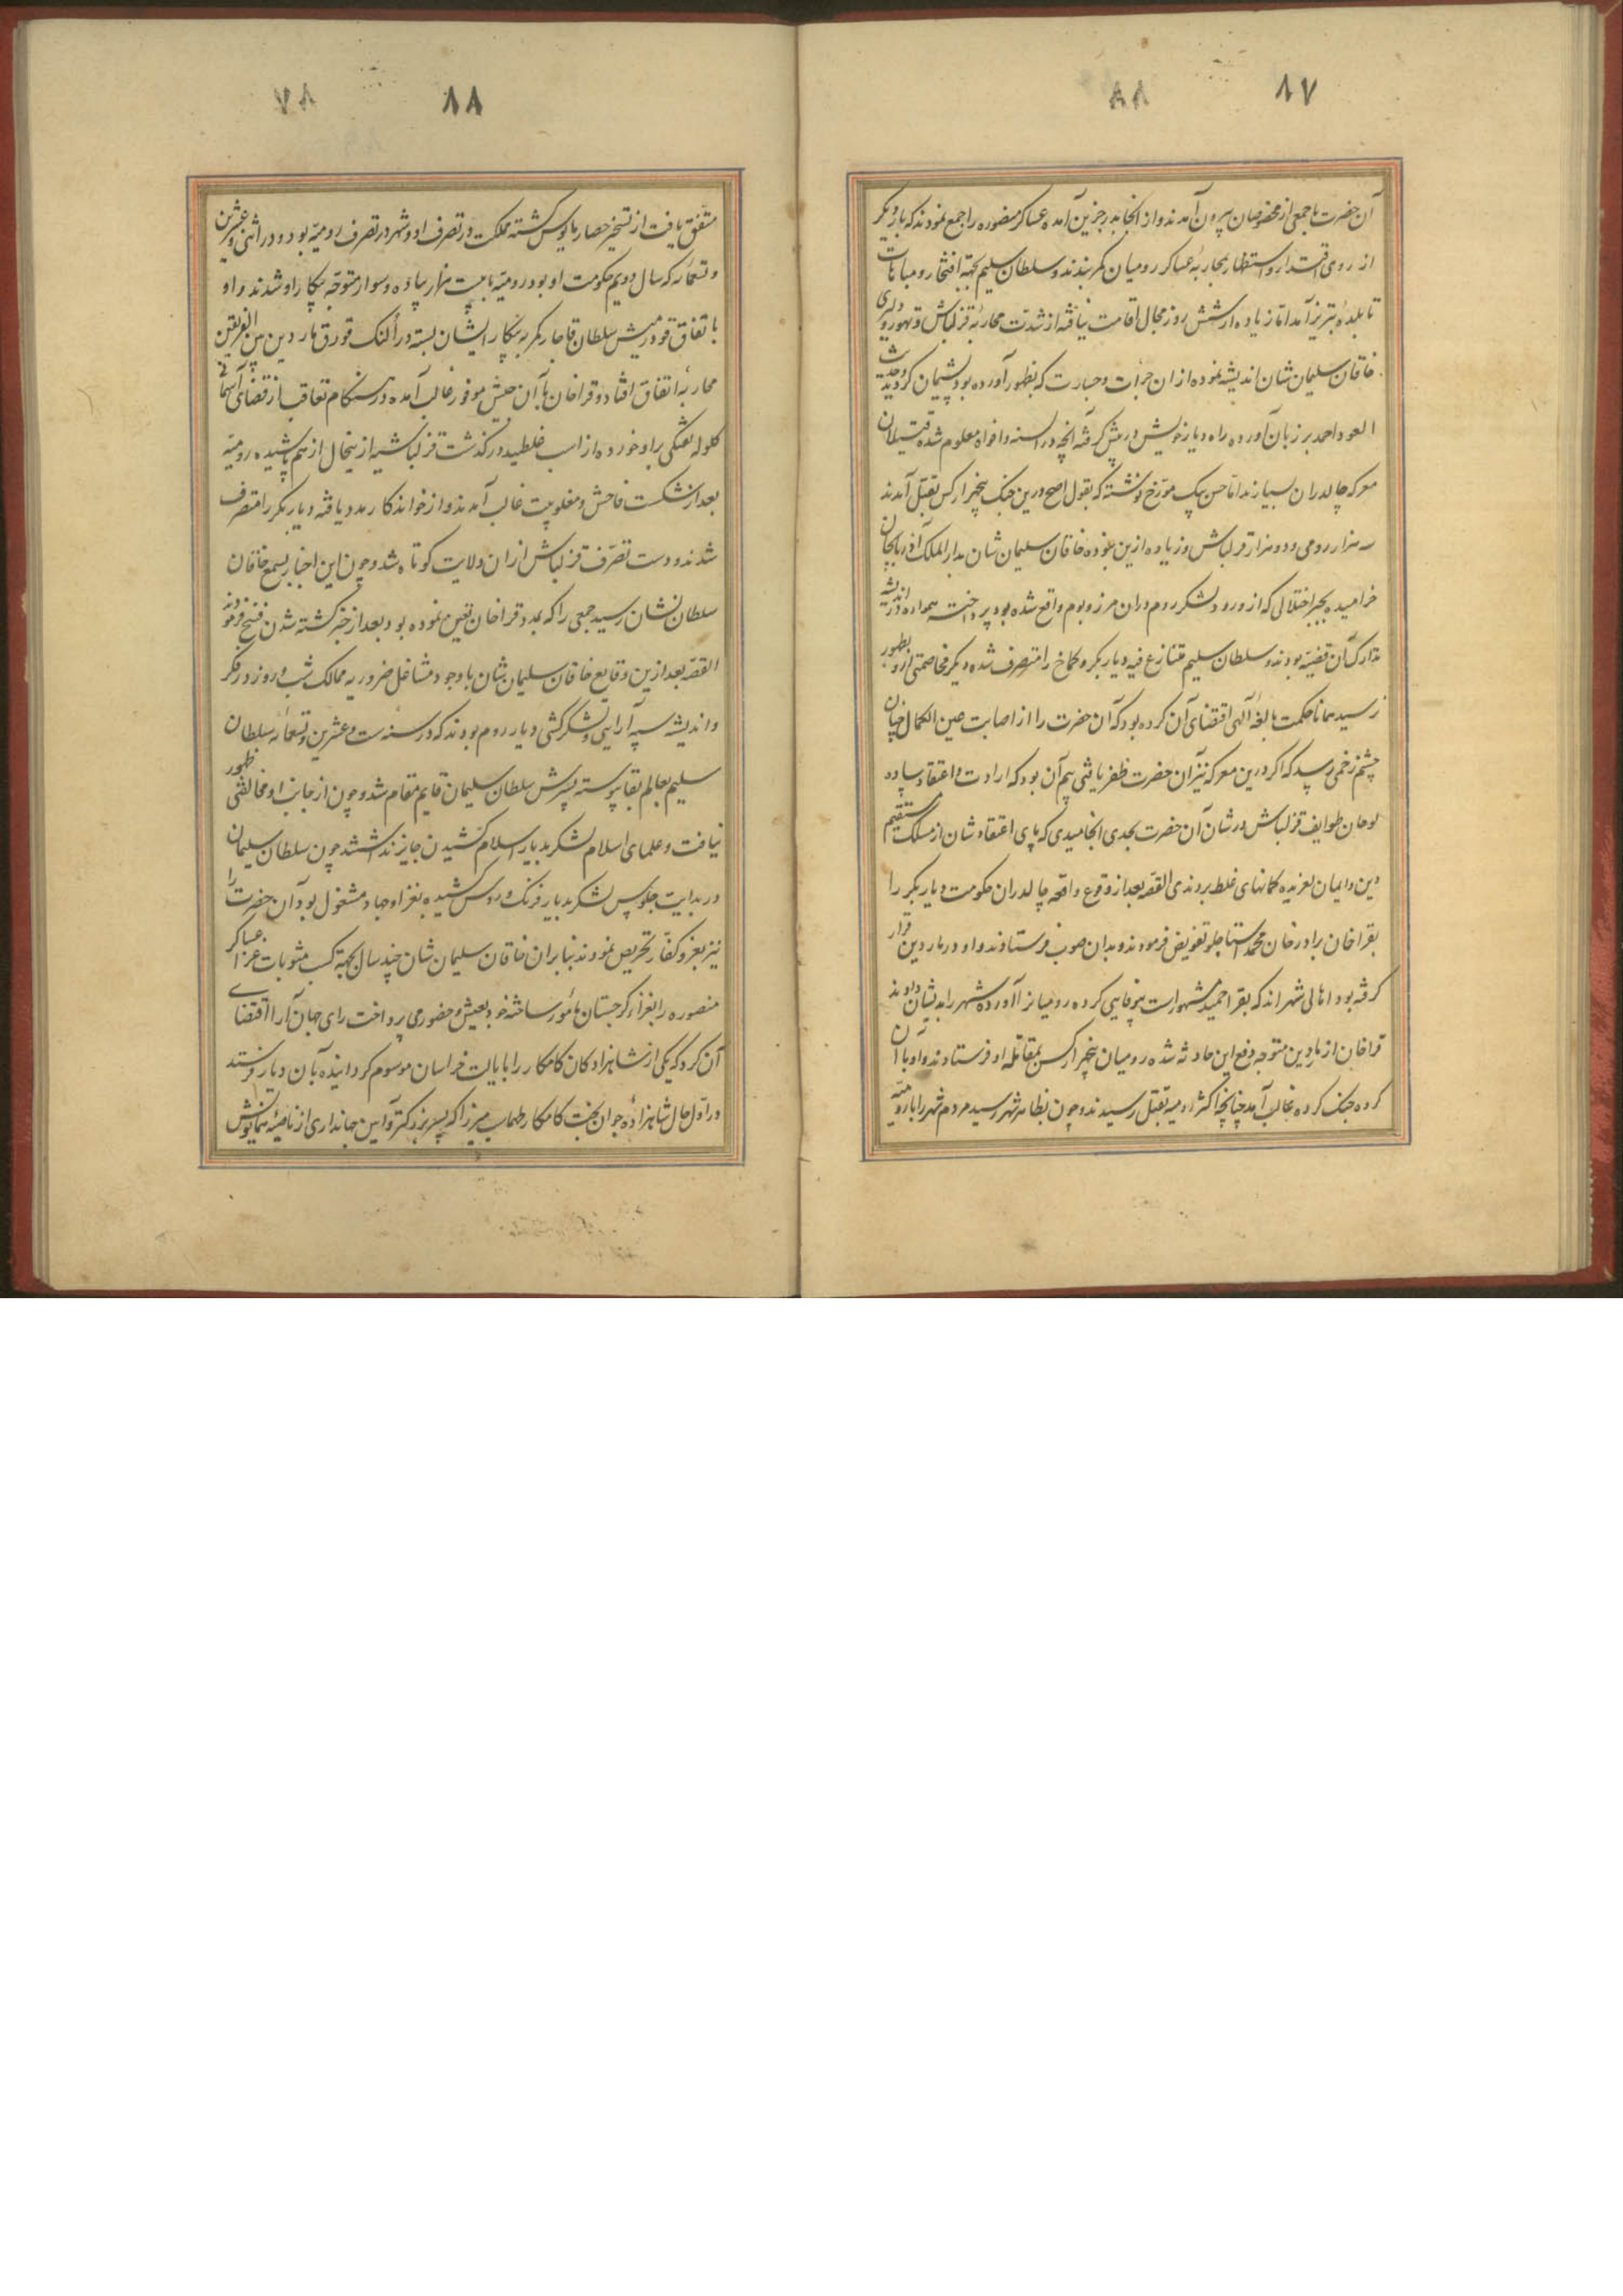 ۸۷
۸۸
آن حضرت با جمعی از مخصوصان بیرون آمدند و از آنجا بدرجزین آمده عساکر منصوره را جمع نمودند که بار دیگر
از روی اقتدار و استظهار بمحاربهٔ عساکر رومیان کمر بندند و سلطان سلیم بجهة افتخار و مباهات
تا بلدهٔ تبریز آمد اما زیاده از شش روز مجال اقامت نیافته از شدت محاربهٔ قزلباش و تهور و دلیری
خاقان سلیمان شان اندیشه نموده از ان جرأت و جسارت که بظهور آورده بود پشیمان کردید و حدیث
العود احمد بر زبان آورده راه دیار خویش در پیش کرفته آنچه در السنه و افواه معلوم شده قتیلان
معرکه چالدران بسیارند اما حسن بیک مورخ نوشته که بقول اصح درین جنک پنجهزار کس بقتل آمدند
سه هزار رومی و دو هزار قزلباش و زیاده ازین نبوده خاقان سلیمان شان بدار الملک آذربایجان
خرامیده بجبر اختلالی که از ورود لشکر روم دران مرز و بوم واقع شده بود پرداخته همواره در اندیشه
تدارک آن قضیه بودند و سلطان سلیم متنازع فیه دیاربکر و کماخ را متصرف شده دیکر مخاصمتی از و بظهور
نرسید همانا حکمت بالغهٔ الهی اقتضای آن کرده بود که آن حضرت را از اصابت عین الکمال چنان
چشم زخمی رسد که اکر درین معرکه نیز آن حضرت ظفر یافتی بیم آن بود که ارادت و اعتقاد ساده
لوحان طوایف قزلباش در شان آن حضرت بحدی انجامیدی که پای اعتقادشان از مسلک مستقیم
دین و ایمان لغزیده کمانهای غلط بردندی القصه بعد از وقوع واقعه چالدران حکومت دیاربکر را
بقراخان برادر خان محمد استاجلو تفویض فرمودند و بدان صوب فرستادند و او در ماردین قرار
کرفته بود اهالی شهر اند که بقراحمید مشهور است بیوفایی کرده رومیانرا آورده شهر را بدیشان دادند
قراخان از ماردین متوجه دفع این حادثه شده رومیان پنجهزار کس بمقابله او فرستادند و او با آن
کرده جنک کرده غالب آمد چنانچه اکثر رومیه بقتل رسیدند و چون بظاهر شهر رسید مردم شهر را با رومیه
۸۸
۷۸
متفق یافت از تسخیر حصار مایوس کشته مملکت در تصرف او و شهر در تصرف رومیه بود و در اثنی و عشرین
و تسعمائه که سال دویم حکومت او بود رومیه با بیست هزار پیاده و سوار متوجه پیکار او شدند و او
با تفاق قورمیش سلطان قاجار کمر به پیکار ایشان بسته در اُلنک قورق ماردین بین الفریقین
محاربه اتفاق افتاد و قراخان با آن جیش موفور غالب آمده در هنکام تعاقب از قضای آسمانی
کلوله تفنکی براو خورده از اسب غلطیده درکذشت قزلباشیه ازینحال از هم پاشیده رومیه
بعد از شکست فاحش و مغلوبیت غالب آمدند و از خواندکار مدد یافته دیاربکر را متصرف
شدند و دست تصرف قزلباش ازان ولایت کوتاه شد و چون این اخبار بسمع خاقان
سلطان نشان رسید جمعی را که بمدد قراخان تعیین نموده بود بعد از خبر کشته شدن فسخ فرمودند
القصه بعد ازین وقایع خاقان سلیمان شان باوجود مشاغل ضروریه ممالک شب و روز در فکر
و اندیشه سپه آرایی و لشکرکشی دیار روم بودند که در سنه ست و عشرین و تسعمائه سلطان
سلیم بعالم بقا پیوسته پسرش سلطان سلیمان قایم مقام شد و چون از جانب او مخالفتی ظهور
نیافت و علمای اسلام لشکر بدیار اسلام کشیدن جایز نداشتند چون سلطان سلیمان
در بدایت جلوس لشکر بدیار فرنک و روس کشیده بغزا و جهاد مشغول بود آن حضرت را
نیز بغزو کفار تحریص نمودند بنابران خاقان سلیمان شان چند سال بجهة کسب مثوبات غزا عساکر
منصوره را بغزای کرجستان مأمور ساخته خود بعیش و حضور می پرداخت رای جهان آرا اقتضای
آن کرد که یکی از شاهزادکان کامکار را بایالت خراسان موسوم کردانیده بآن دیار فرستد
در اول حال شاهزاده جوان بخت کامکار طهماسب میرزا که پسر بزرکتر و آیین جهانداری از ناصیه همایونش